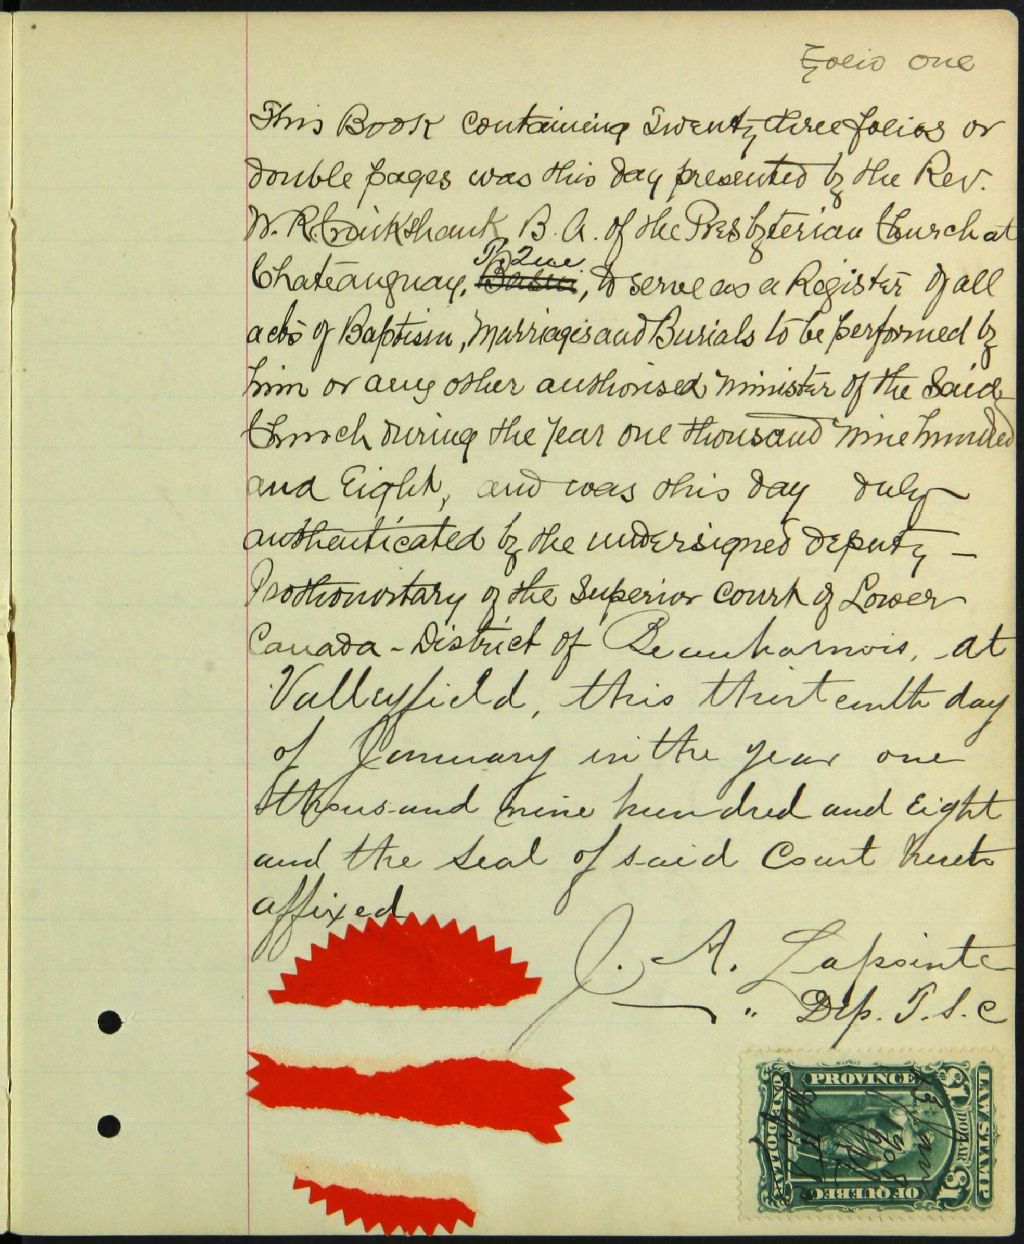 Folio One
This Book containing Twenty three folios or
double pages was this day presented by the Rev.
W. R. Cruikshank B. A. of the Presbyterian Church at
Chateauguay, P. Que
Basin, to serve as a Register of all
acts of Baptism, Marriages and Burials to be performed by
him or any other authorised minister of the Said
Church during the Year one thousand nine hundred
and Eight, and was this day duly
authenticated by the undersigned deputy -
Prothonotary of the Superior Court of Lower
Canada - District of Beauharnois, at
Valleyfield, this thirteenth day
of January in the year one
thousand nine hundred and Eight
and the seal of said Court hereto
affixed
J. A. Lapointe
" Dep. P. S. C
PROVINCE
OF QUEBEC
LAW STAMP
$1 DOLLAR $1
ONE DOLLAR
13 Jan
1908